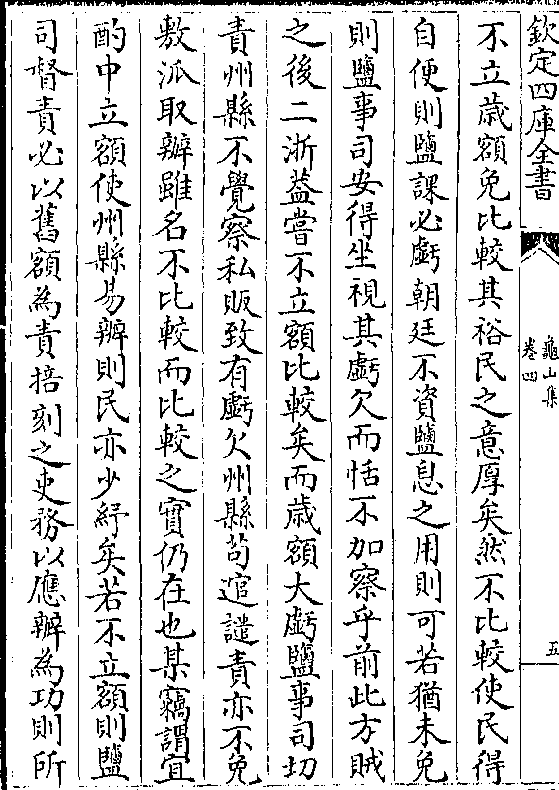 欽定四庫全書
龜山集
卷四
五
不立歳額免比較其裕民之意厚矣然不比較使民得
自便則鹽課必虧朝廷不資鹽息之用則可若猶未免
則鹽事司安得坐視其虧欠而恬不加察乎前此方賊
之後二浙葢嘗不立額比較矣而歳額大虧鹽事司切
責州縣不覺察私販致有虧欠州縣苟逭譴責亦不免
敷派取辦雖名不比較而比較之實仍在也某竊謂宜
酌中立額使州縣易辦則民亦少紓矣若不立額則鹽
司督責必以舊額為責掊刻之吏務以應辦為功則所